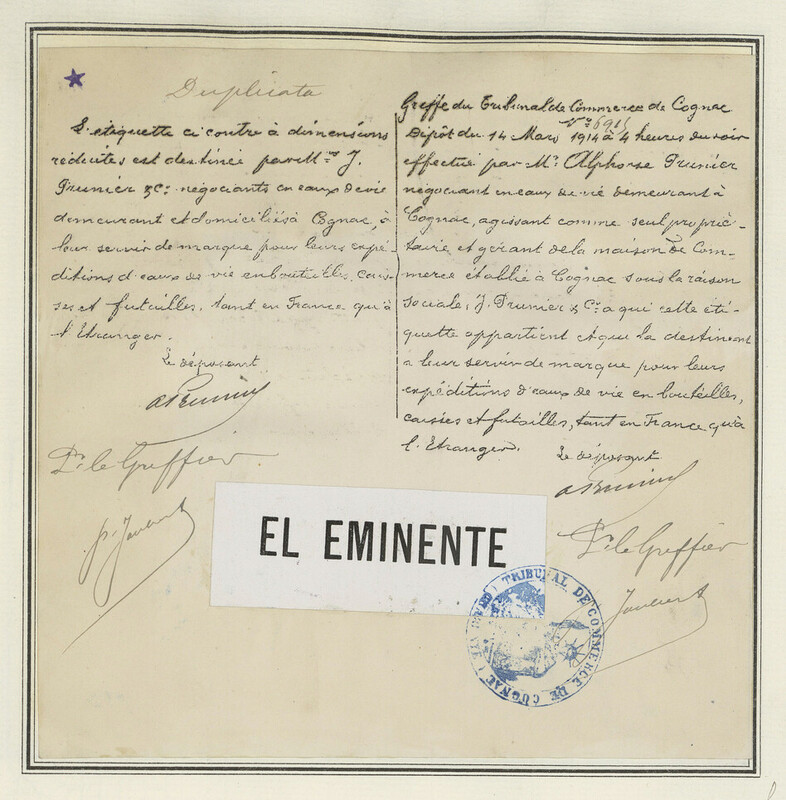 Duplicata
L'étiquette ci contre à dimensions
réduites est destinée par Mrs J.
Prunier & Cie négociants en eaux de vie
demeurant et domiciliés à Cognac, à
leur servir de marque pour leurs expé-
ditions d'eaux de vie en bouteilles, cais-
ses et futailles, tant en France qu'à
l'Etranger.
Le déposant
A Prunier
Pr. le Greffier
Greffe du Tribunal de Commerce de Cognac
Dépôt du 14 Mars 1914 à 4 heures du soir
effectué par Mr. Alphonse Prunier
négociant en eaux de vie demeurant à
Cognac, agissant comme seul proprié-
taire et gérant de la maison de Com-
merce établie à Cognac sous la raison
sociale, J. Prunier & Cie a qui cette éti-
quette appartient et qui la destinent
a leur servir de marque pour leurs
expéditions d'eaux de vie en bouteilles,
caisses et futailles, tant en France qu'à
l'Etranger.
Le déposant
A Prunier
Pr. le Greffier
EL EMINENTE
TRIBUNAL DE COMMERCE DE COGNAC